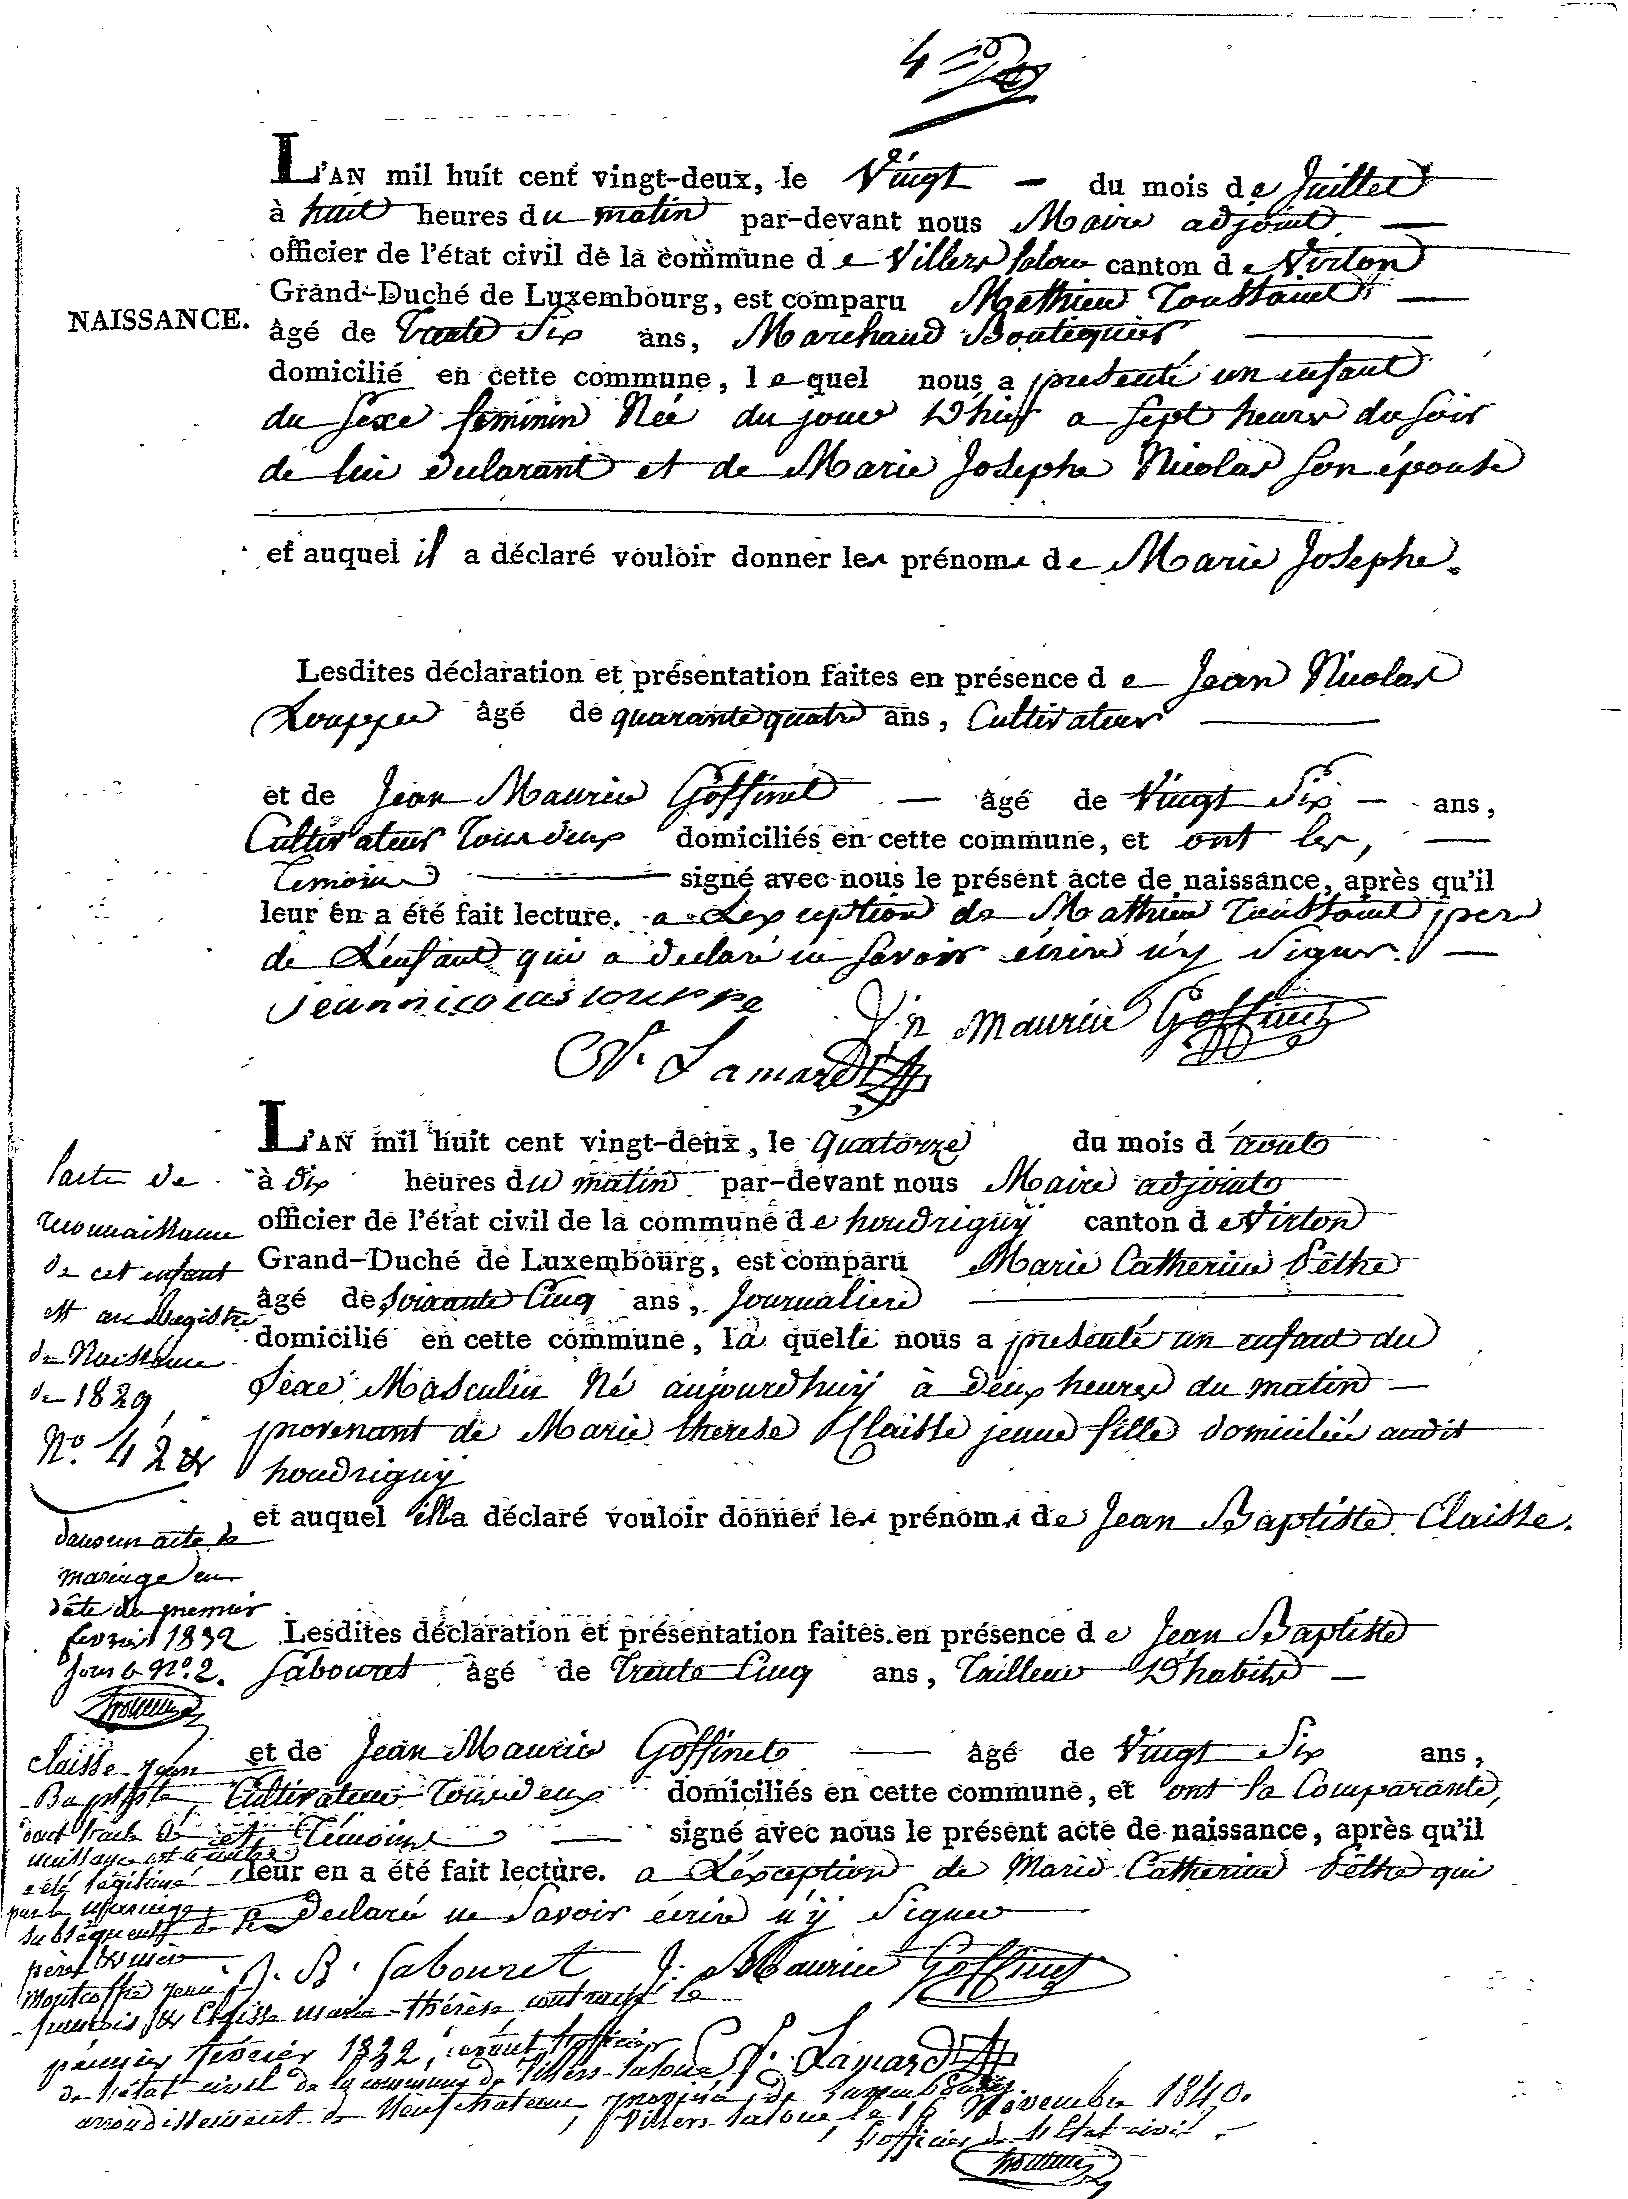 4
L'AN mil huit cent vingt-deux, le Vingt — du mois de Juillet
à huit heures du matin par-devant nous Maire adjoint —
officier de l'état civil de la commune de Villers laloue canton de Virton
Grand-Duché de Luxembourg, est comparu Mathieu Toustaint —
NAISSANCE.
âgé de Trente Six ans, Marchand Boutiquier
domicilié en cette commune, lequel nous a presenté un enfant
du sexe feminin Née du jour D'hier a sept heures du soir
de lui declarant et de Marie Josephe Nicolas son épouse
et auquel il a déclaré vouloir donner les prénoms de Marie Josephe.
Lesdites déclaration et présentation faites en présence de Jean Nicolas
Louppe âgé de quarante quatre ans, Cultivateur
et de Jean Maurice Goffinet — âgé de Vingt Six — ans,
Cultivateur Tous deux domiciliés en cette commune, et ont les, —
Temoins signé avec nous le présent acte de naissance, après qu'il
leur en a été fait lecture. a L'exception de Mathieu Toustaint pere
de L'enfant qui a declaré ne savoir écrire n'y Signer. —
Jean nicolas louppe
Jn Maurice Goffinet
N. Lamard
L'AN mil huit cent vingt-deux, le Quatorze du mois d'aout
à dix heures du matin par-devant nous Maire adjoint
officier de l'état civil de la commune de houdriguy canton de Virton
Grand-Duché de Luxembourg, est comparu Marie Catherine Pêthe
âgé de Soixante Cinq ans, Journaliere
domicilié en cette commune, la quelle nous a presenté un enfant du
Sexe Masculin Né aujourdhuy à deux heures du matin —
provenant de Marie therese Claisse jeune fille domiciliée audit
houdriguy
et auquel illa déclaré vouloir donner les prénoms de Jean Baptiste Claisse.
Lesdites déclaration et présentation faites en présence de Jean Baptiste
Sabouret âgé de Trente Cinq ans, Tailleur D'habits —
et de Jean Maurice Goffinet — âgé de Vingt Six ans,
Cultivateur Tous deux domiciliés en cette commune, et ont la Comparante,
et Témoins — signé avec nous le présent acte de naissance, après qu'il
leur en a été fait lecture. a L'exception de Marie Catherine Pêthe qui
a Declaré ne Savoir écrire n'y Signer
J. B. Sabouret J: Maurice Goffinet
N. Lamard
l'acte de
reconnaissance
de cet enfant
est au Registre
de Naissance
de 1829,
No. 42 &
dans un acte de
mariage en
date du premier
fevrier 1832
sous le No. 2.
claisse jean
Baptiste,
dont l'acte de
naissance est ci contre
a été légitimé
par le mariage
subséquent de ses
père et mère
Montcoffre jean
francois et Claisse marie-thérèse, contracté le
premier février 1832, devant l'officier
de l'état civil de la commune de Villers-laloue
arrondissement de Neufchateau, province de Luxembourg.
Villers-laloue, le 16 Novembre 1840.
l'officier de l'Etat-civil.